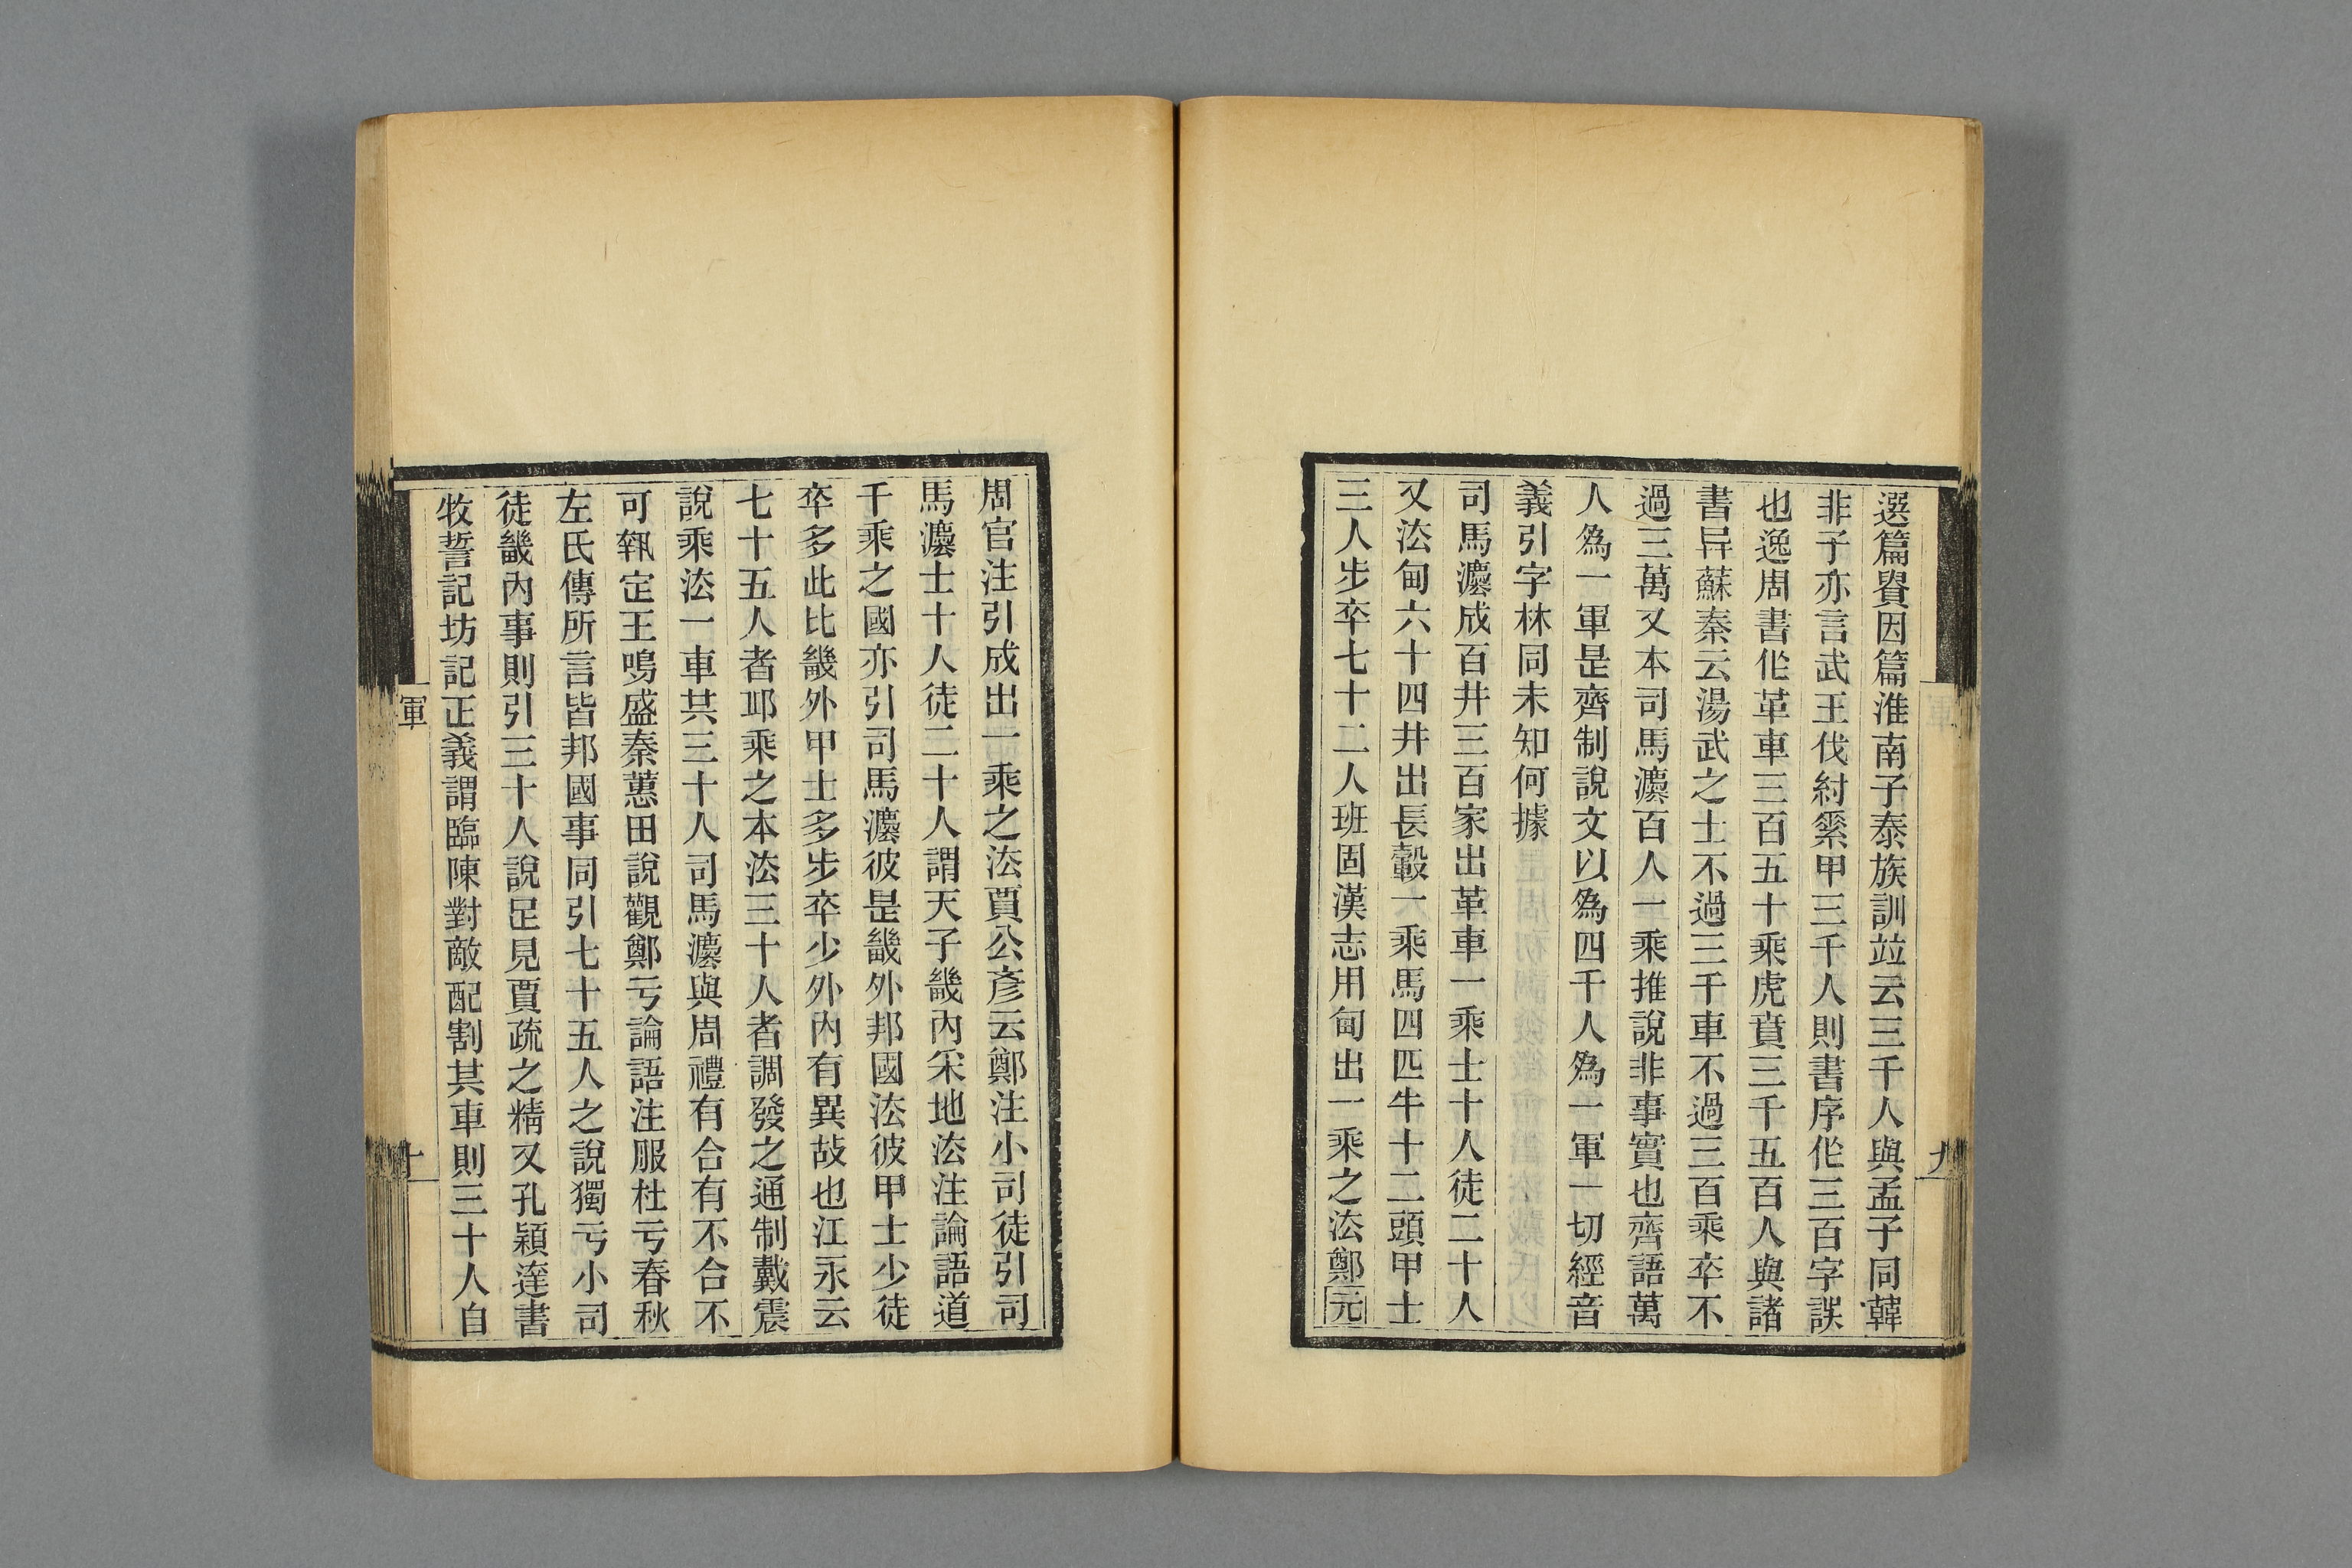 選篇貴因篇淮南子泰族訓竝云三千人與孟子同韓
非子亦言武王伐紂㯱甲三千人則書序㐲三百字誤
也逸周書㐲革車三百五十乘虎賁三千五百人與諸
書异蘇秦云湯武之士不過三千車不過三百乘卒不
過三萬又本司馬灋百人一乘推說非事實也齊語萬
人爲一軍是齊制說文以爲四千人爲一軍一切經音
義引字林同未知何據
司馬灋成百井三百家出革車一乘士十人徒二十人
又法甸六十四井出長轂一乘馬四匹牛十二頭甲士
三人步卒七十二人班固漢志用甸出一乘之法鄭元
九
周官注引成出一乘之法賈公彥云鄭注小司徒引司
馬灋士十人徒二十人謂天子畿內采地法注論語道
千乘之國亦引司馬灋彼是畿外邦國法彼甲士少徒
卒多此比畿外甲士多步卒少外內有異故也江永云
七十五人者丘乘之本法三十人者調發之通制戴震
說乘法一車共三十人司馬灋與周禮有合有不合不
可執定王鳴盛秦蕙田說觀鄭亏論語注服杜亏春秋
左氏傳所言皆邦國事同引七十五人之說獨亏小司
徒畿內事則引三十人說足見賈疏之精又孔穎達書
牧誓記坊記正義謂臨陳對敵配割其車則三十人自
軍
十